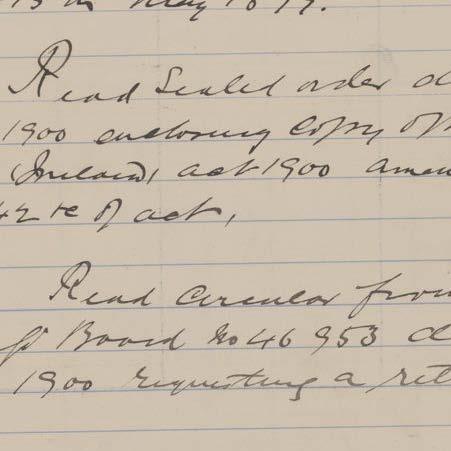 May 1899.
Read Sealed order d
1900 enclosing Copy of
(Ireland) act 1900 amen
42 re of act,
Read Circular from
Board No 46 953 d
1900 requesting a ret